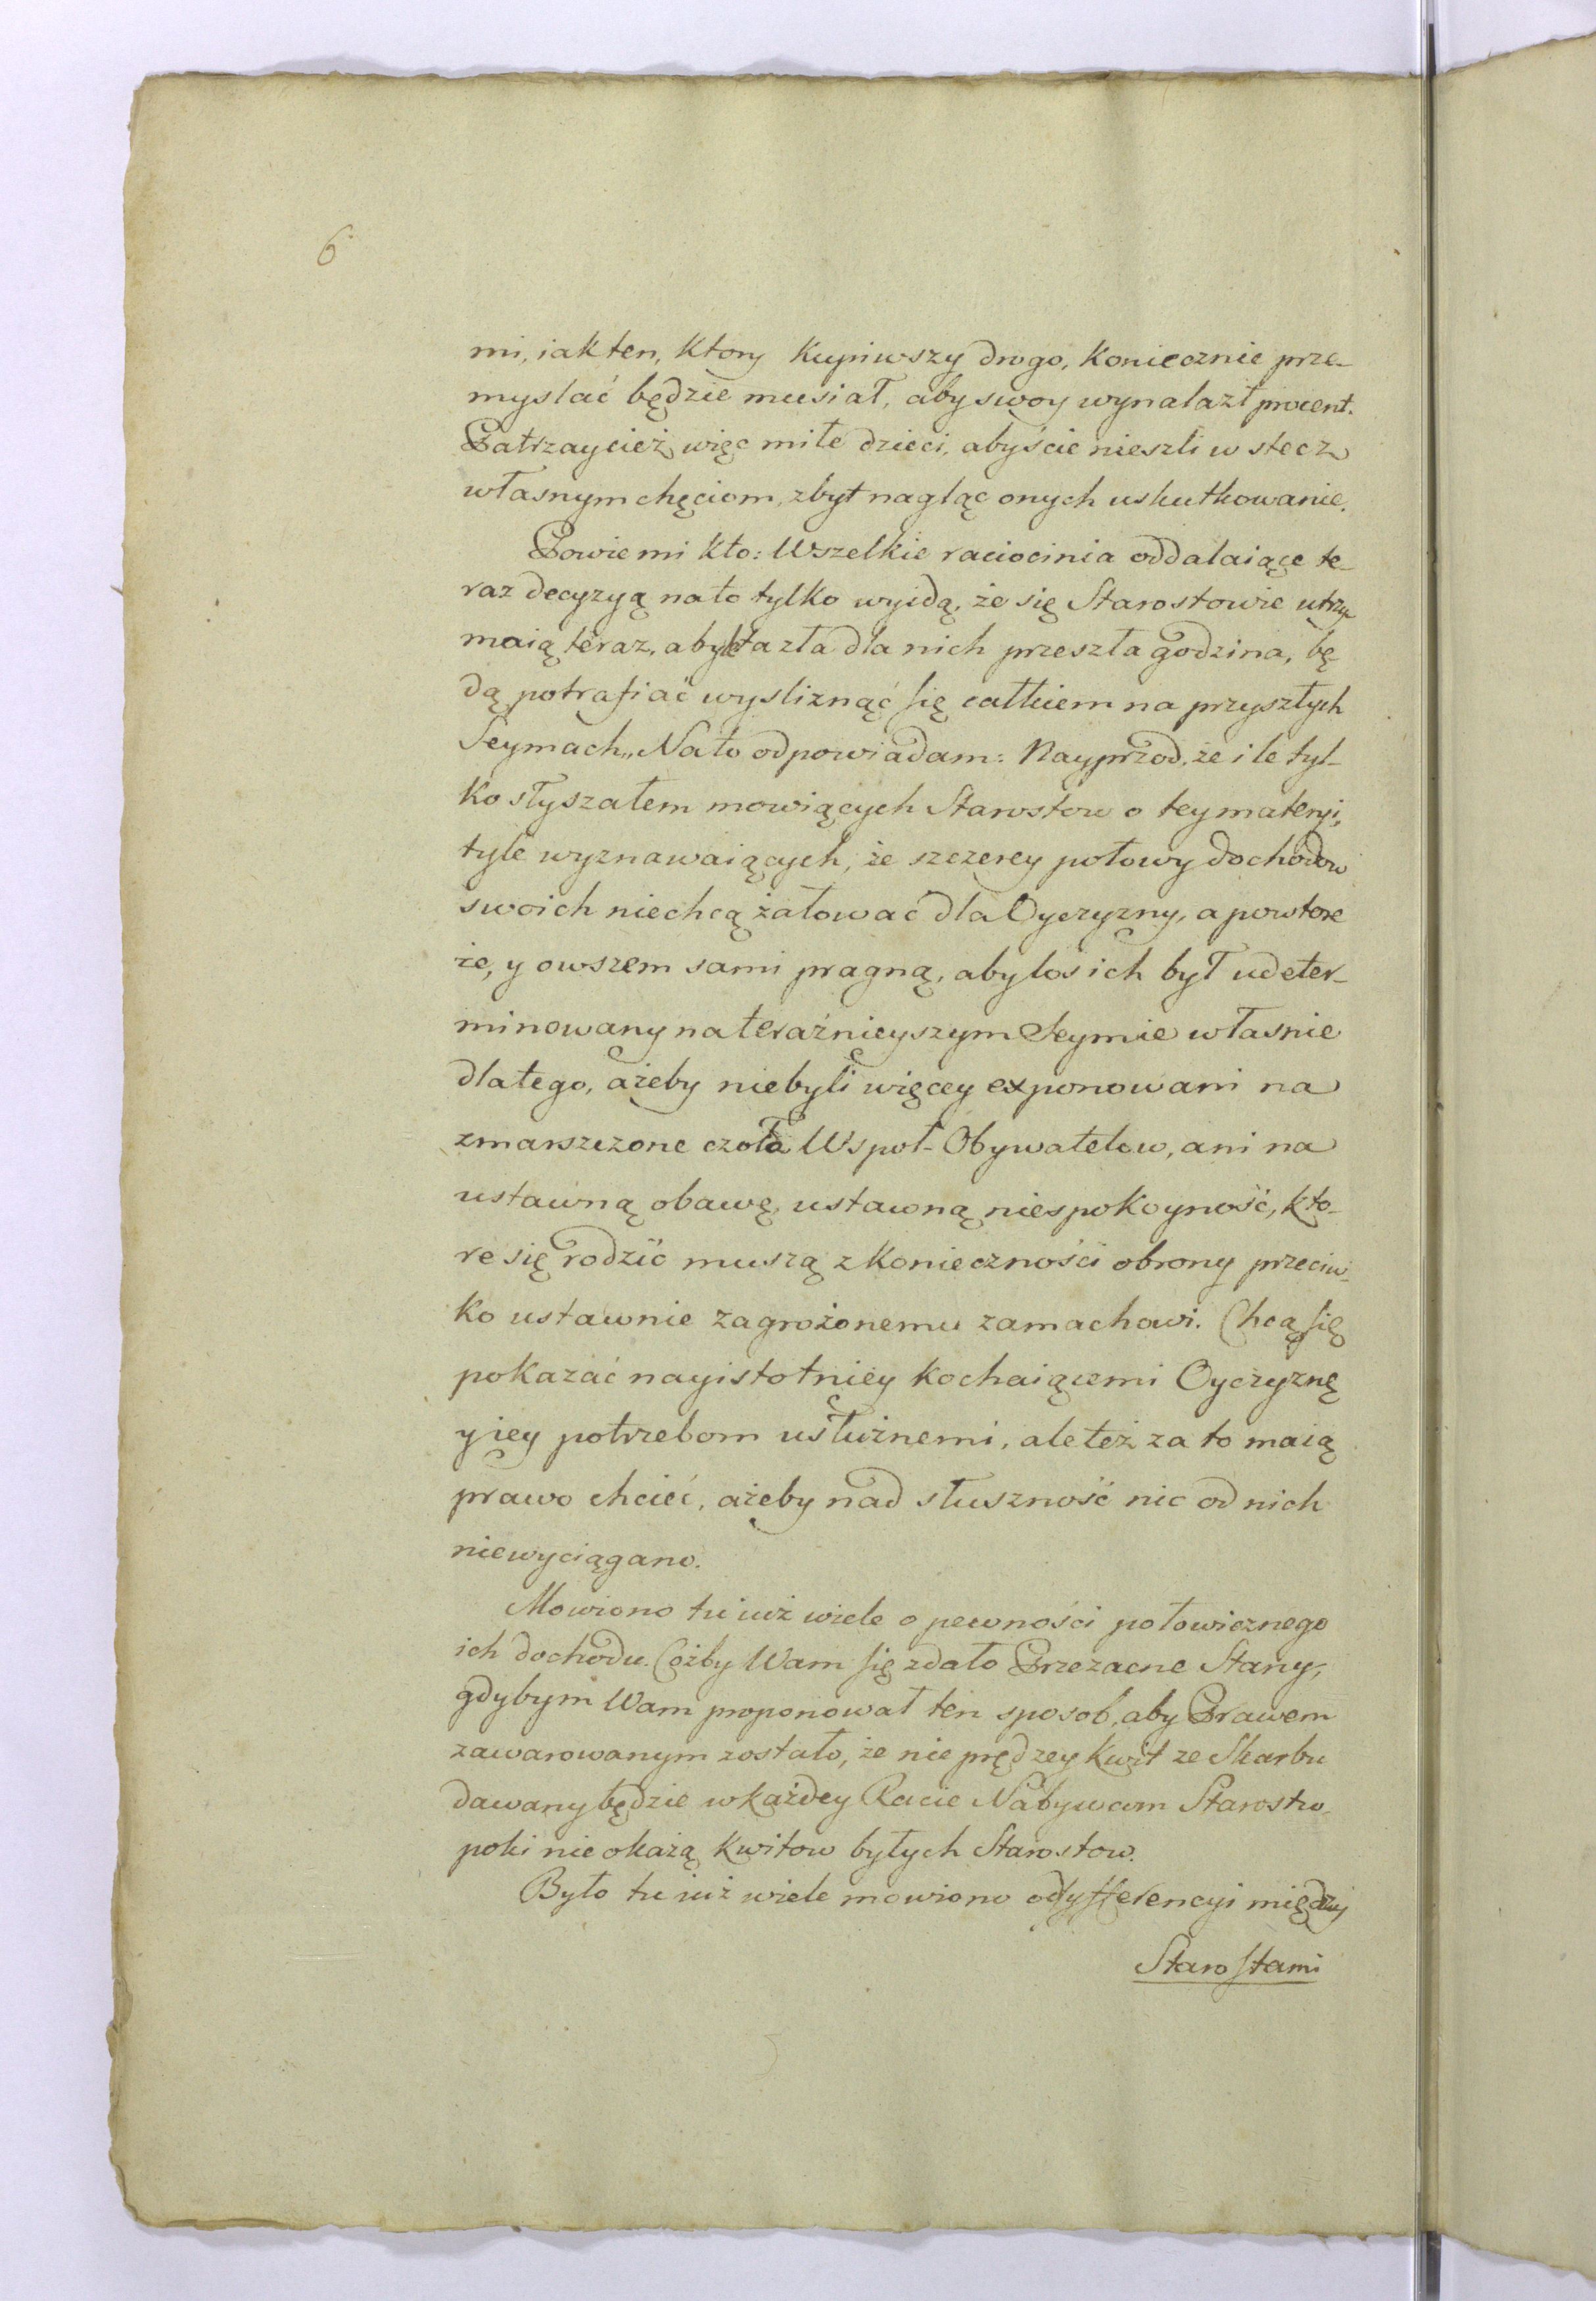 6
mi, iak ten, ktory kupiwszy drogo, koniecznie prze-
myslać będzie musiał, aby swoy wynalazł procent.
Patrzaycież więc miłe dzieci, abyście nieszli w stecz
własnym chęciom, zbyt nagląc onych uskutkowanie.
Powie mi kto: Wszelkie raciocinia oddalaiące te-
raz decyzyą nato tylko wyidą, że się Starostowie utrzy-
maią teraz, aby ta zła dla nich przeszła godzina, bę
dą potrafiać wysliznąć się całkiem na przyszłych
Seymach„ Nato odpowiadam: Nayprzod, że ile tyl-
ko słyszałem mowiących Starostow o tey materyi,
tyle wyznawaiących, że szczerey połowy dochodow
swoich niechcą żałować dla Oyczyzny, a powtore
że, y owszem sami pragną, aby los ich był udeter-
minowany na teraźnieyszym Seymie własnie
dlatego, ażeby niebyli więcey exponowani na
zmarszczone czoła Wspoł-Obywatelow, ani na
ustawną obawę, ustawną niespokoyność, kto-
re się rodzić muszą z konieczności obrony przeciw-
ko ustawnie zagrożonemu zamachowi. Chcą się
pokazać nayistotniey kochaiącemi Oyczyznę
y iey potrzebom usłużnemi, ale też za to maią
prawo chcieć, ażeby nad słuszność nic od nich
niewyciągano.
Mowiono tu iuż wiele o pewności połowicznego
ich dochodu. Cożby Wam się zdało Przezacne Stany,
gdybym Wam proponował ten sposob, aby Prawem
zawarowanym zostało, że nie prędzey kwit ze Skarbu
dawany będzie w każdey Racie Nabywcom Starostw
poki nie okażą kwitow byłych Starostow.
Było tu iuż wiele mowiono o dyfferencyi między
Starostami